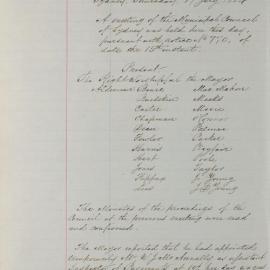 Sydney, Thursday 17 July
A meeting of the Municipal Council
of Sydney was held here this day,
pursuant with notice No 770, of
date the 15th instant.
Present
The Right Worshipful the Mayor
Aldermen
Mac Mahon
Meeks
Carter
Chapman O'Connor
Dean Palmer
Fowler Parker
Harris Playfair
Hart Poole
Jones Taylor
Kippax J. Young
Lees J. D. Young
The Minutes of the proceedings of the
Council at the previous meeting were read
and confirmed.
The Mayor reported that he had appointed
temporarily Mr as assistant
Inspector of at per day